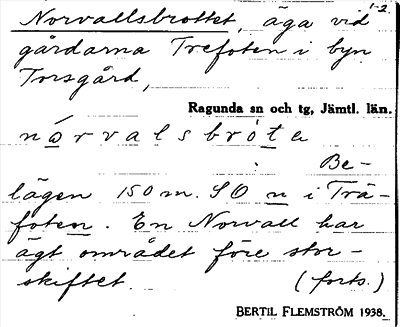 1-2.
Norvallsbrottet, äga vid
gårdarna Trefoten i byn
Torsgård,
Ragunda sn och tg, Jämtl. län.
nårvalsbróta
Be-
lägen 150 m. SO n i Trä-
foten. En Norvall har
ägt området före stor-
skiftet. (forts.)
BERTIL FLEMSTRÖM 1938.